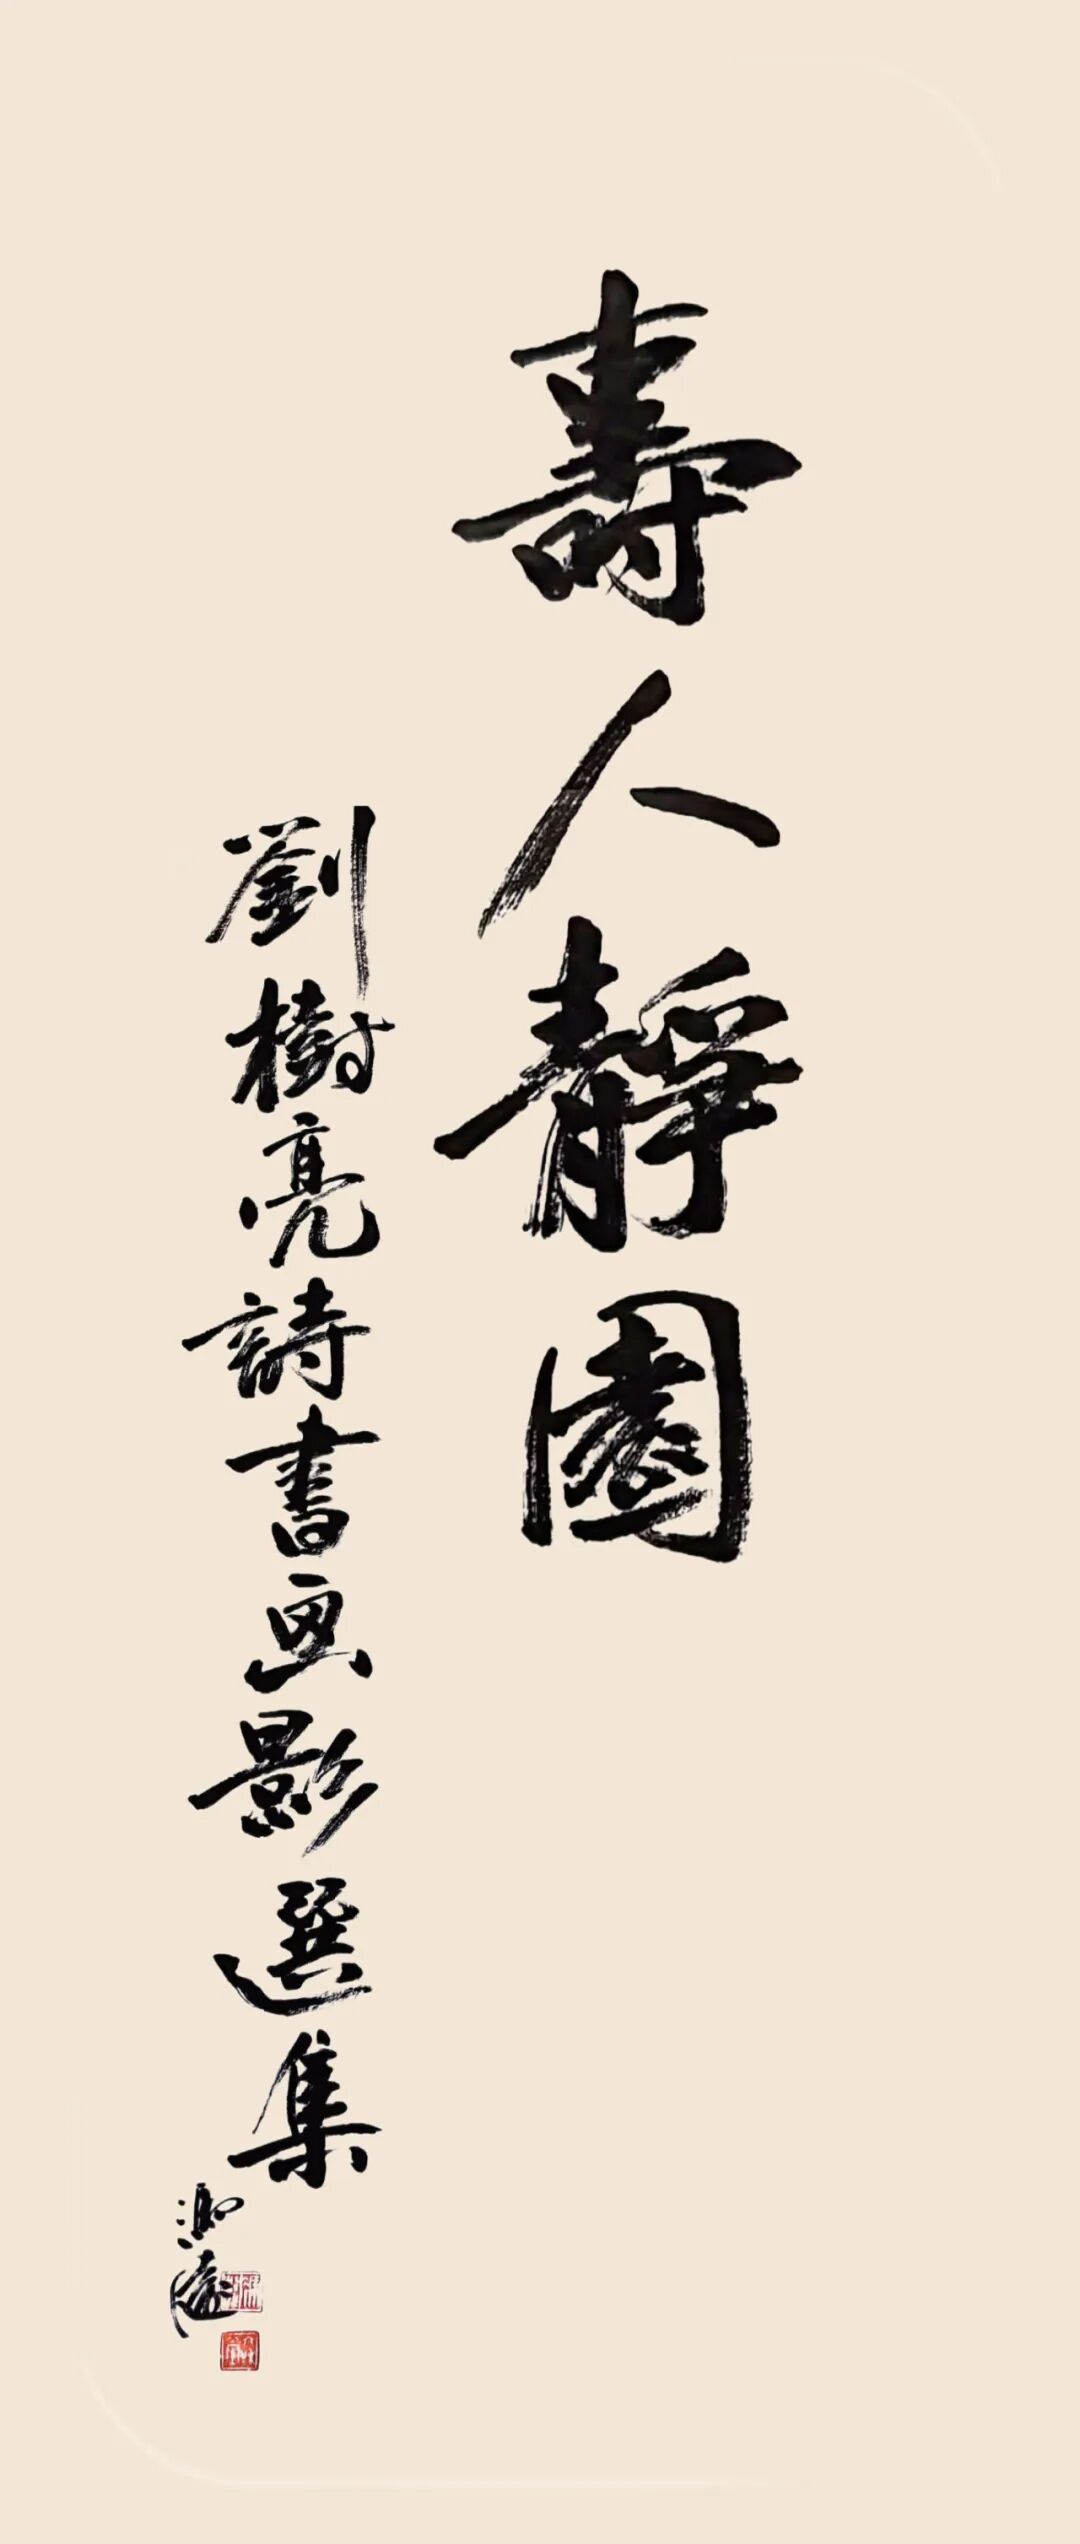 壽人靜園
劉樹亮詩書画影選集